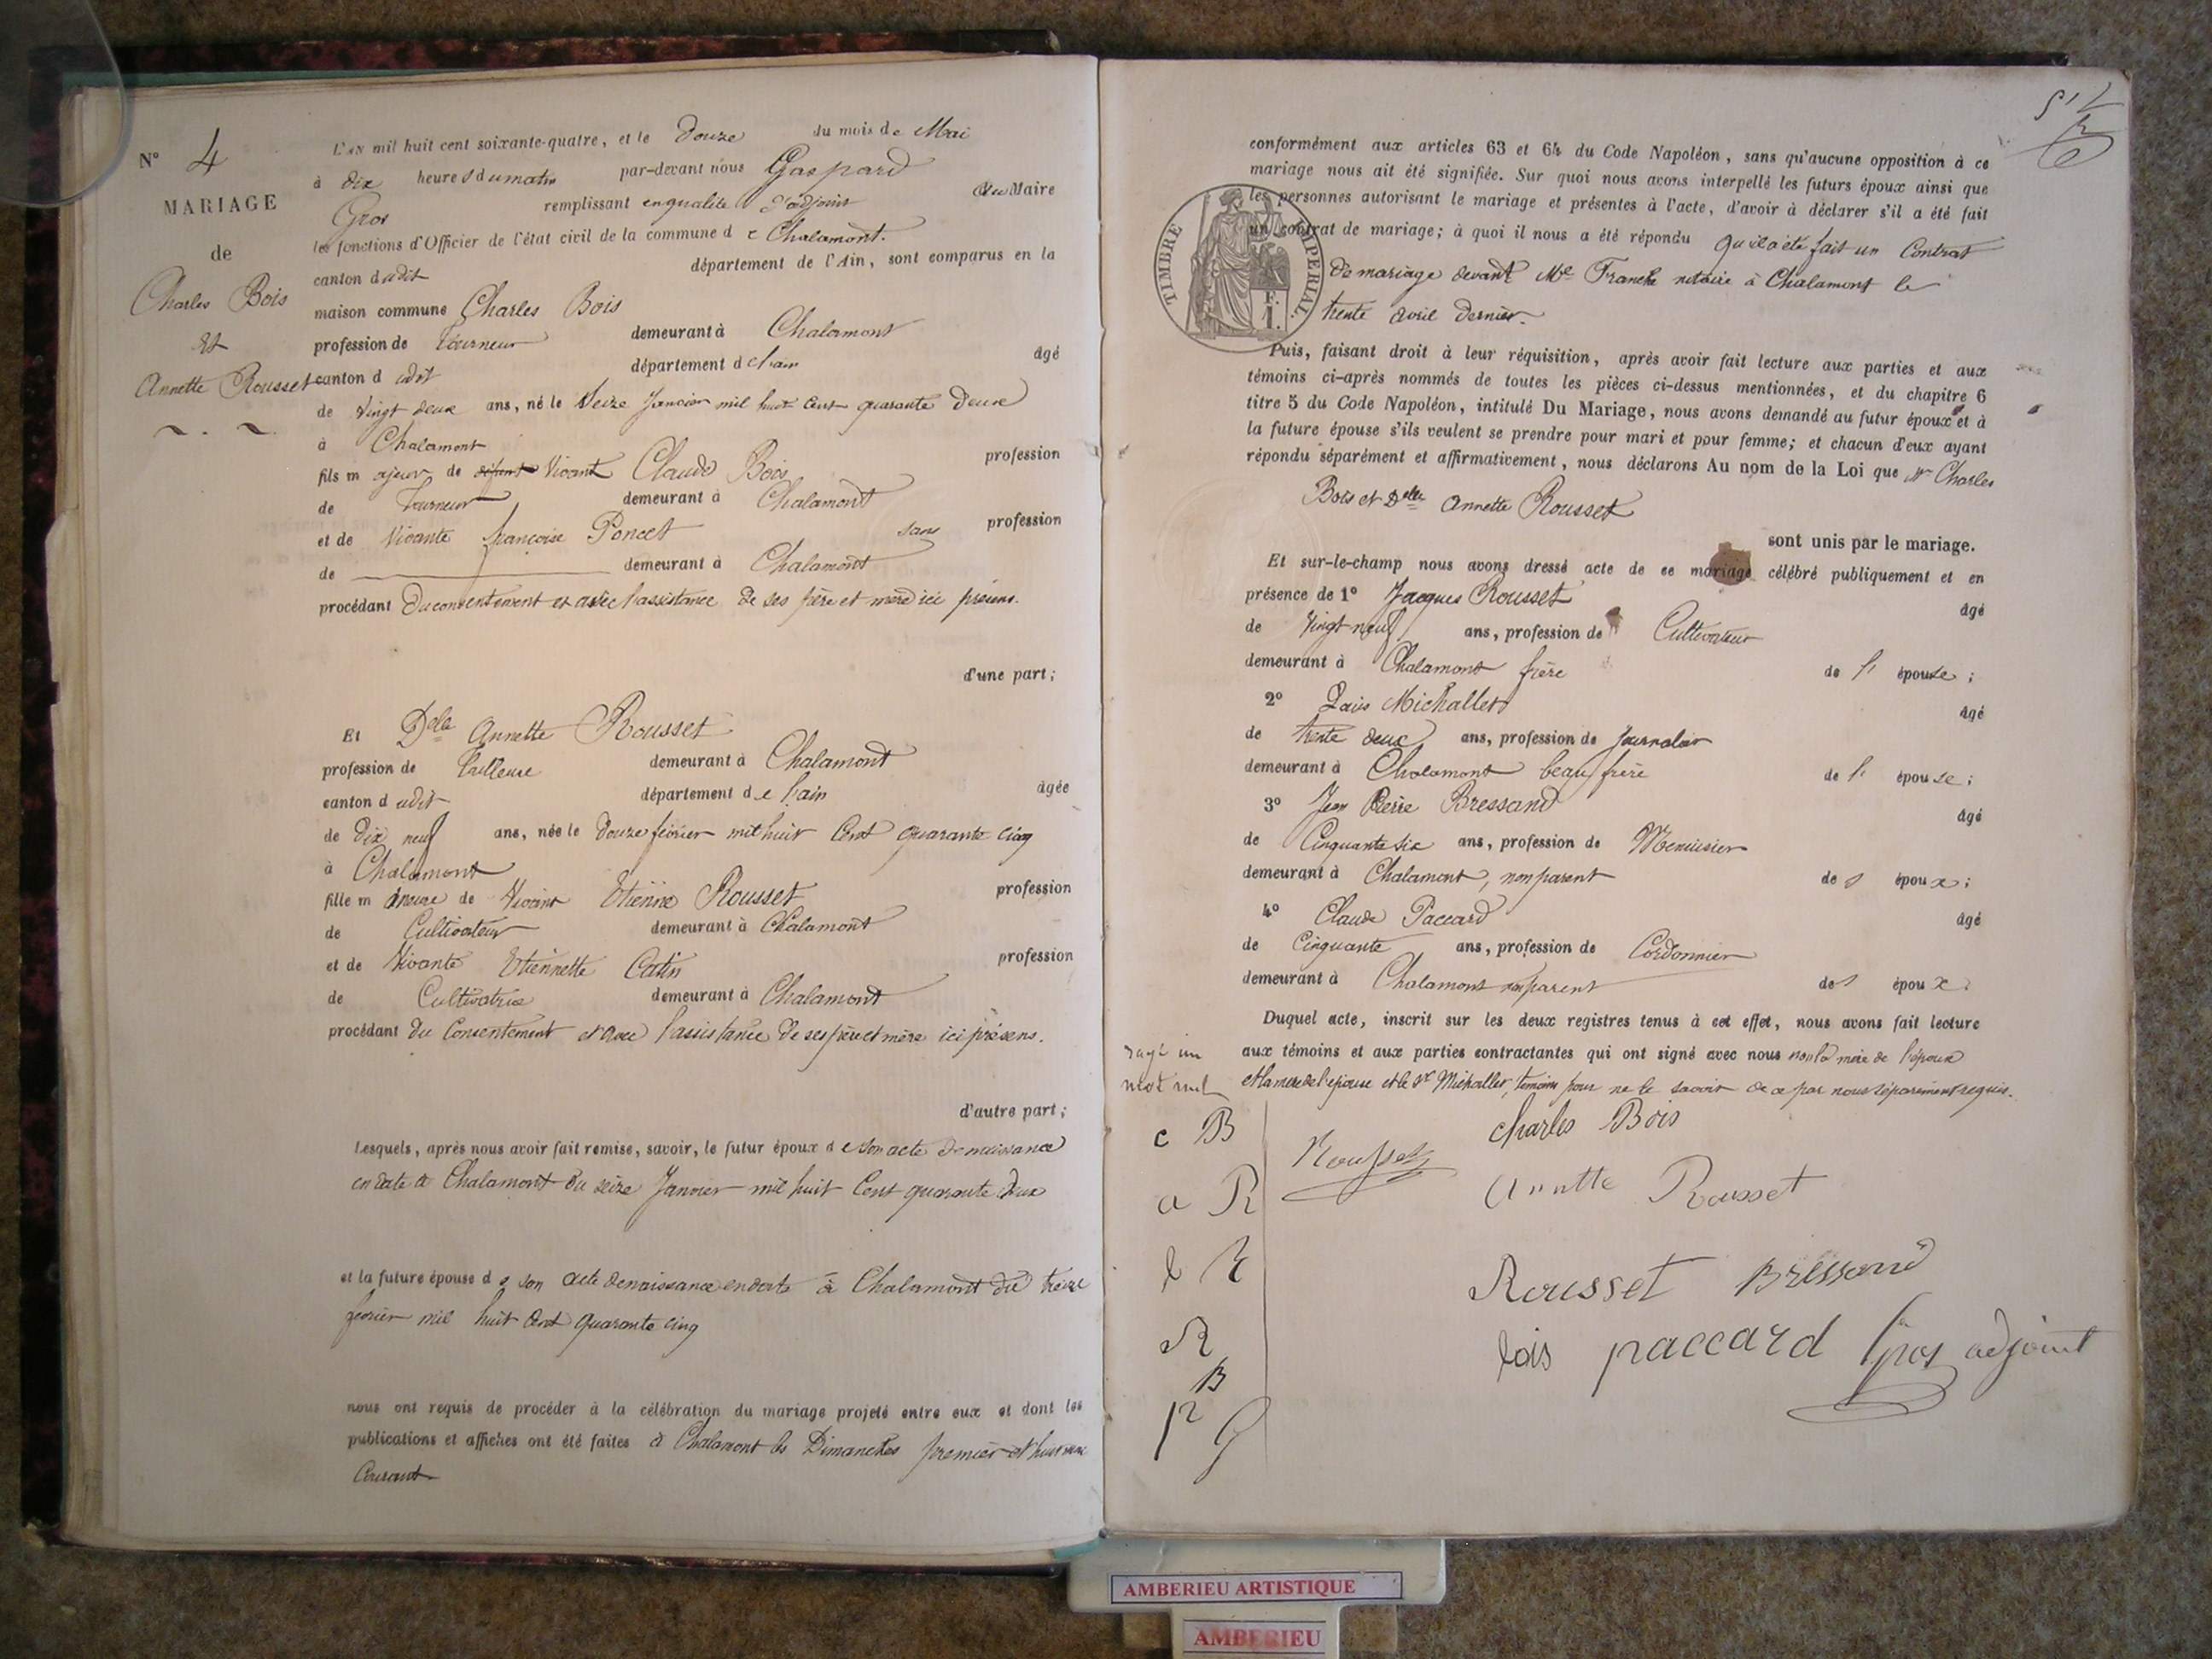 N° 4
MARIAGE
de
Charles Bois
Et
Annette Rousset
L'AN mil huit cent soixante-quatre, et le Douze du mois de Mai
à dix heures du matin par-devant nous Gaspard
Gros remplissant en qualité d'adjoint au Maire
les fonctions d'Officier de l'état civil de la commune de Chalamont.
canton dudit département de l'Ain, sont comparus en la
maison commune Charles Bois
profession de Tourneur demeurant à Chalamont
canton dudit département de l'ain âgé
de Vingt deux ans, né le Seize Janvier mil huit Cent quarante deux
à Chalamont
fils majeur de défunt Vivant Claude Bois profession
de Tourneur demeurant à Chalamont
et de Vivante françoise Poncet sans profession
de demeurant à Chalamont
procédant du consentement et avec l'assistance de ses père et mère ici présens.
d'une part;
Et Delle Annette Rousset
profession de Tailleuse demeurant à Chalamont
canton dudit département de l'ain âgée
de dix neuf ans, née le douze février mil huit Cent quarante cinq
à Chalamont
fille mineure de Vivant Etienne Rousset profession
de Cultivateur demeurant à Chalamont
et de Vivante Etiennette Catin profession
de Cultivatrice demeurant à Chalamont
procédant du Consentement et avec l'assistance de ses père et mère ici présens.
d'autre part;
Lesquels, après nous avoir fait remise, savoir, le futur époux de son acte de naissance
en date à Chalamont du seize Janvier mil huit Cent quarante deux
et la future épouse de son acte de naissance en date à Chalamont du treize
février mil huit Cent quarante cinq
nous ont requis de procéder à la célébration du mariage projeté entre eux et dont les
publications et affiches ont été faites à Chalamont les Dimanches premier et huit mai
Courant
conformément aux articles 63 et 64 du Code Napoléon, sans qu'aucune opposition à ce
mariage nous ait été signifiée. Sur quoi nous avons interpellé les futurs époux ainsi que
les personnes autorisant le mariage et présentes à l'acte, d'avoir à déclarer s'il a été fait
un contrat de mariage; à quoi il nous a été répondu qu'il a été fait un Contrat
de mariage devant Me Franche notaire à Chalamont le
trente avril dernier.
TIMBRE IMPERIAL
F.
1.
Puis, faisant droit à leur réquisition, après avoir fait lecture aux parties et aux
témoins ci-après nommés de toutes les pièces ci-dessus mentionnées, et du chapitre 6
titre 5 du Code Napoléon, intitulé Du Mariage, nous avons demandé au futur époux et à
la future épouse s'ils veulent se prendre pour mari et pour femme; et chacun d'eux ayant
répondu séparément et affirmativement, nous déclarons Au nom de la Loi que Mr Charles
Bois et Delle Annette Rousset
sont unis par le mariage.
Et sur-le-champ nous avons dressé acte de ce mariage célébré publiquement et en
présence de 1° Jacques Rousset âgé
de Vingt neuf ans, profession de Cultivateur
demeurant à Chalamont frère de l' épouse;
2° Louis Michallet âgé
de trente deux ans, profession de Journalier
demeurant à Chalamont beau frère de l' épouse;
3° Jean Pierre Bressand âgé
de Cinquante six ans, profession de Menuisier
demeurant à Chalamont, non parent des époux;
4° Claude Paccard âgé
de Cinquante ans, profession de Cordonnier
demeurant à Chalamont non parent des époux.
Duquel acte, inscrit sur les deux registres tenus à cet effet, nous avons fait lecture
aux témoins et aux parties contractantes qui ont signé avec nous non la mère de l'époux
et la mère de l'épouse et le Sr Michallet, témoins pour ne le savoir de ce par nous séparément requis.
rayé un
mot nul
c B
a R
R
B
Charles Bois
Rousset
Annette Rousset
Rousset Bressand
bois paccard Gros adjoint
AMBERIEU ARTISTIQUE
AMBERIEU